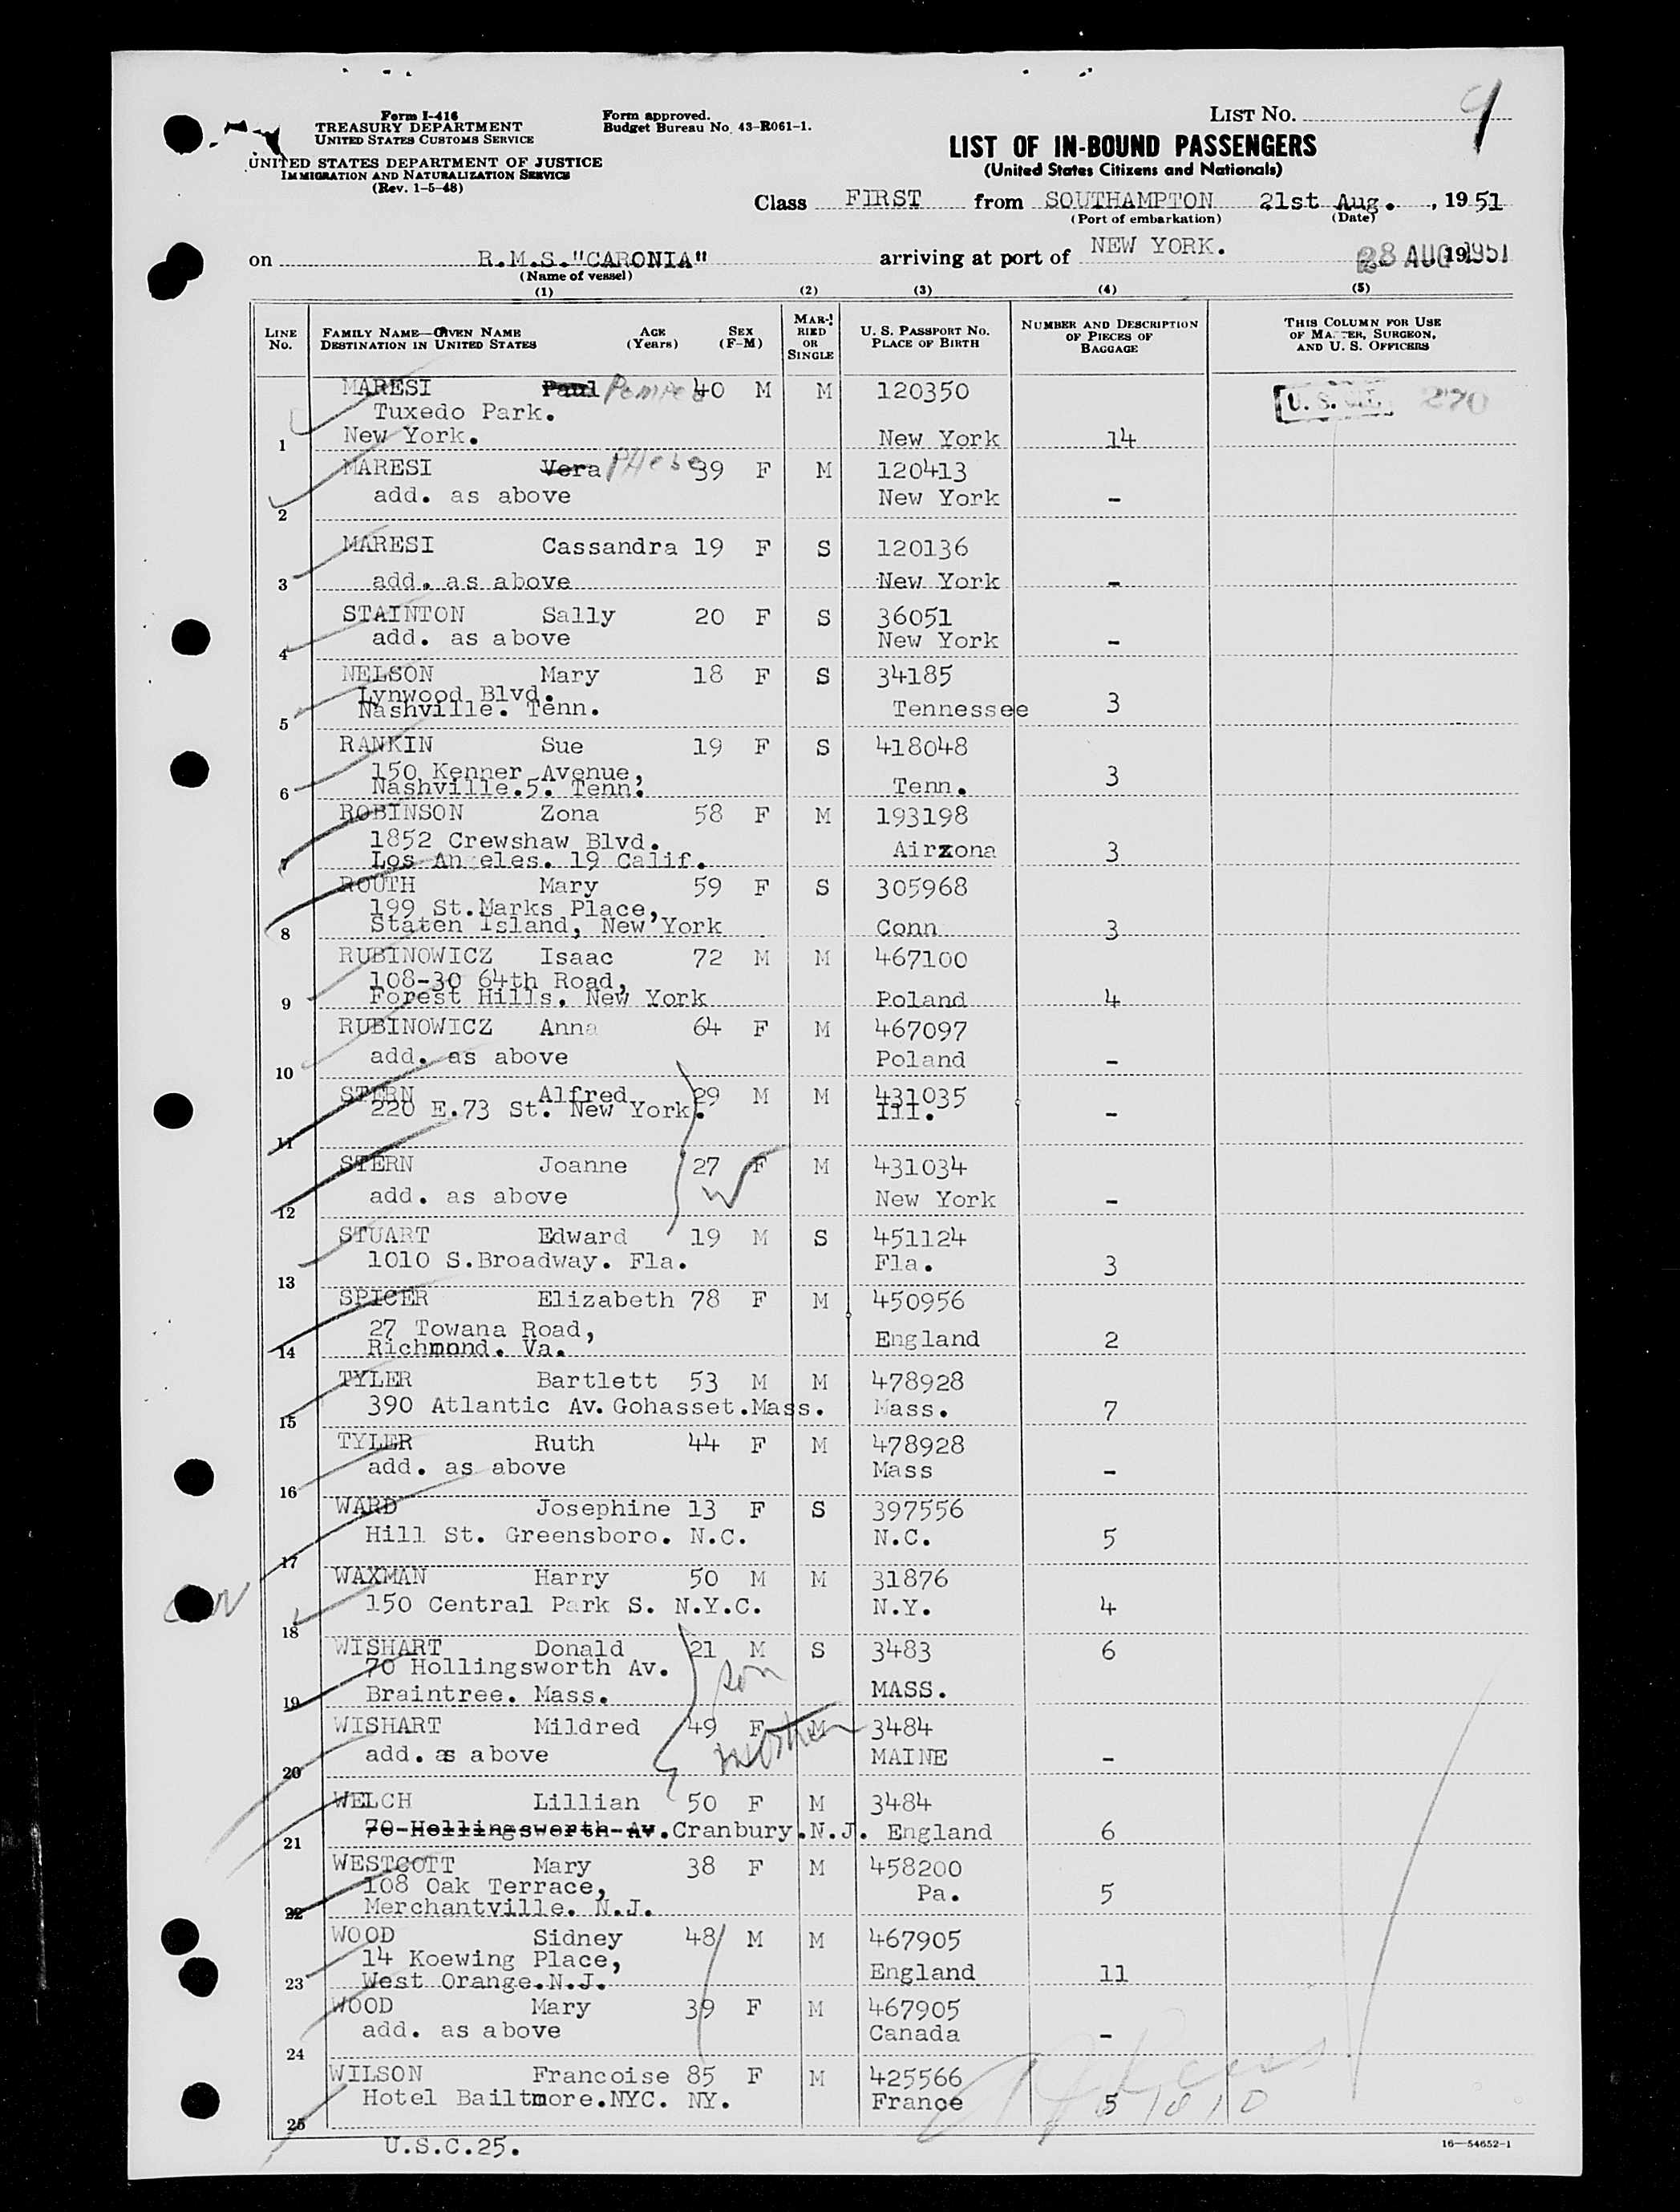 Form I-416
TREASURY DEPARTMENT
UNITED STATES CUSTOMS SERVICE
UNITED STATES DEPARTMENT OF JUSTICE
IMMIGRATION AND NATURALIZATION SERVICE
(Rev. 1-5-48)
Form approved.
Budget Bureau No. 43-R061-1.
LIST NO. 9
LIST OF IN-BOUND PASSENGERS
(United States Citizens and Nationals)
Class FIRST from SOUTHAMPTON 21st Aug. , 19 51
(Port of embarkation) (Date)
on R.M.S."CARONIA" arriving at port of NEW YORK. 28 AUG 1951 19
(Name of vessel)
(1) (2) (3) (4) (5)
LINE No. FAMILY NAME—GIVEN NAME DESTINATION IN UNITED STATES AGE (Years) SEX (F-M) MARRIED OR SINGLE U. S. PASSPORT NO. PLACE OF BIRTH NUMBER AND DESCRIPTION OF PIECES OF BAGGAGE THIS COLUMN FOR USE OF MASTER, SURGEON, AND U. S. OFFICERS
MARESI Paul 40 M M 120350 270
Tuxedo Park.
1 New York. New York 14
MARESI Vera Phebe 39 F M 120413
add. as above New York -
2
MARESI Cassandra 19 F S 120136
3 add. as above New York -
STAINTON Sally 20 F S 36051
add. as above New York -
4
NELSON Mary 18 F S 34185
Lynwood Blvd.
Nashville. Tenn. Tennessee 3
5
RANKIN Sue 19 F S 418048
150 Kenner Avenue, 3
6 Nashville.5. Tenn. Tenn.
ROBINSON Zona 58 F M 193198
1852 Crewshaw Blvd. Airzona 3
7 Los An eles. 19 Calif.
ROUTH Mary 59 F S 305968
199 St.Marks Place,
8 Staten Island, New York Conn 3
RUBINOWICZ Isaac 72 M M 467100
108-30 64th Road,
9 Forest Hills. New York Poland 4
RUBINOWICZ Anna 64 F M 467097
add. as above Poland -
10
STERN Alfred 29 M M 431035
220 E.73 St. New York. Ill. -
11
STERN Joanne 27 F M 431034
add. as above New York -
12
STUART Edward 19 M S 451124
1010 S.Broadway. Fla. Fla. 3
13
SPICER Elizabeth 78 F M 450956
27 Towana Road, England 2
14 Richmond. Va.
TYLER Bartlett 53 M M 478928
390 Atlantic Av. Gohasset.Mass. Mass. 7
15
TYLER Ruth 44 F M 478928
add. as above Mass -
16
WARD Josephine 13 F S 397556
Hill St. Greensboro. N.C. N.C. 5
17
WAXMAN Harry 50 M M 31876
150 Central Park S. N.Y.C. N.Y. 4
18
WISHART Donald 21 M S 3483 6
70 Hollingsworth Av. son
19 Braintree. Mass. MASS.
WISHART Mildred 49 F M 3484
add. as above mother MAINE -
20
WELCH Lillian 50 F M 3484
70-Hollingsworth-Av.Cranbury.N.J. England 6
21
WESTCOTT Mary 38 F M 458200
108 Oak Terrace, Pa. 5
22 Merchantville. N.J.
WOOD Sidney 48 M M 467905
14 Koewing Place,
23 West Orange.N.J. England 11
WOOD Mary 39 F M 467905
add. as above Canada -
24
WILSON Francoise 85 F M 425566
Hotel Bailtmore.NYC. NY. France 5
25
U.S.C.25.
16—54652-1